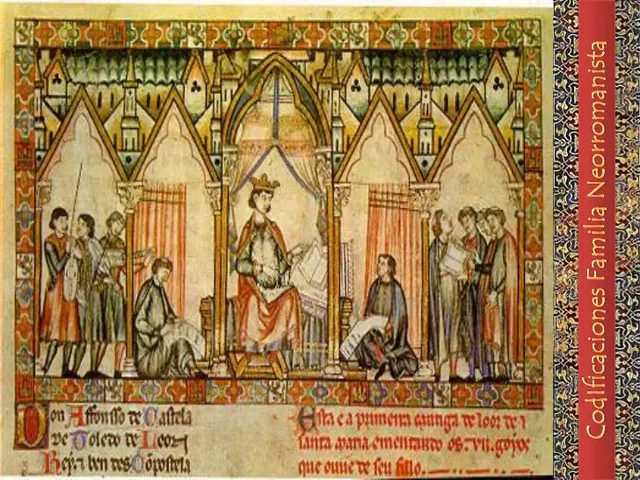 Don Affonsso de Castela
de Toledo de Leon
Rey ⁊ ben des Cõpostela
Esta e a primeira cantiga de loor de
santa maria ementando os .vii. goyos
que ouue de seu fillo.
Codificaciones Familia Neorromanista